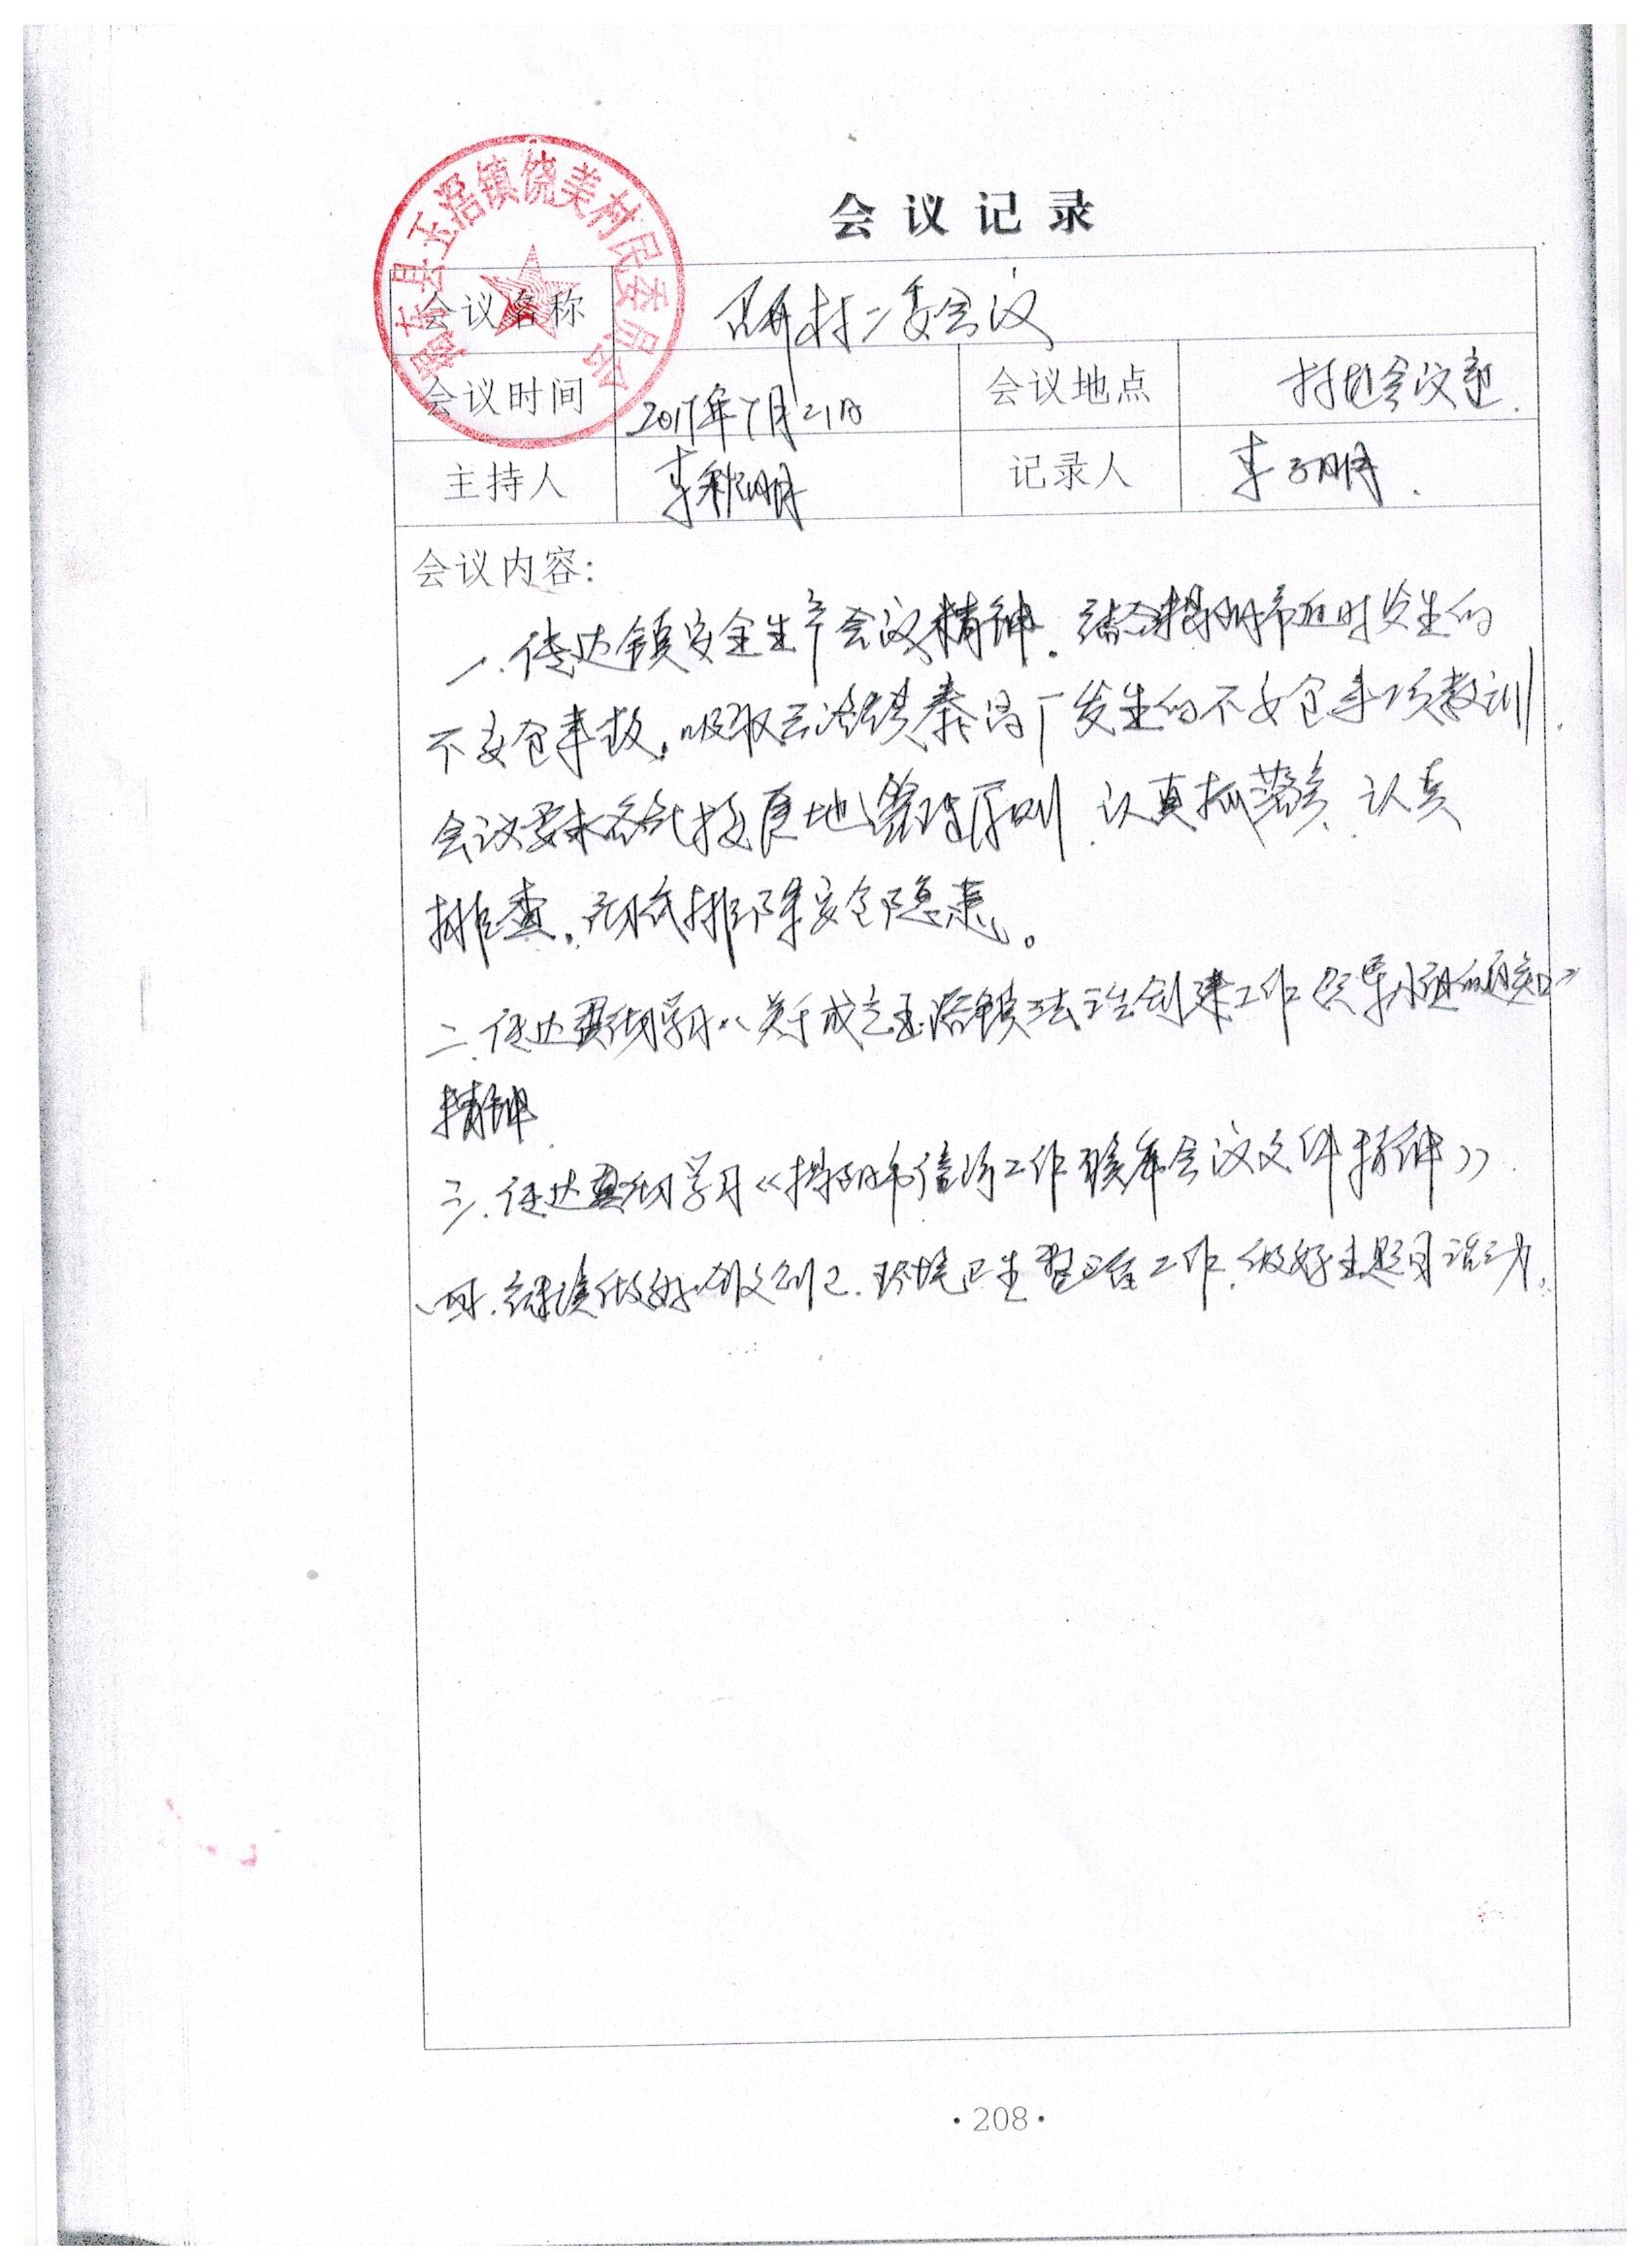 揭东县玉滘镇饶美村民委员会
会议记录
会议名称 召开村二委会议
会议时间 2017年7月21日 会议地点 村旧会议室.
主持人 李秋明 记录人 李子明.
会议内容:
一.传达镇安全生产会议精神.结合揭阳市近时发生的
不安全事故,吸取云路镇泰 厂发生的不安全事项教训.
会议要求各 按 地管理原则.认真抓落实.认真
排查,彻底排除安全隐患。
二.传达贯彻学习《关于成立玉滘镇法治创建工作领导小组的通知》
精神
三.传达贯彻学习《揭阳市信访工作联席会议文件精神》
四.继续做好创文创卫.环境卫生整治工作.做好主题月活动。
·208·